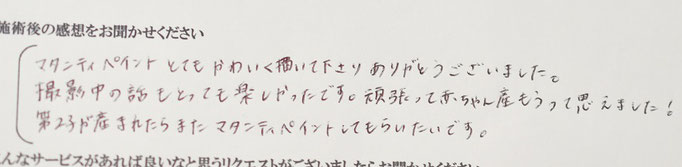 施術後の感想をお聞かせください
マタニティペイントとてもかわいく描いて下さりありがとうございました。
撮影中の話もとっても楽しかったです。頑張って赤ちゃん産もうって思えました!
第2子が産まれたらまたマタニティペイントしてもらいたいです。
んなサービスがあれば良いなと思うリクエストがございましたらお聞かせください